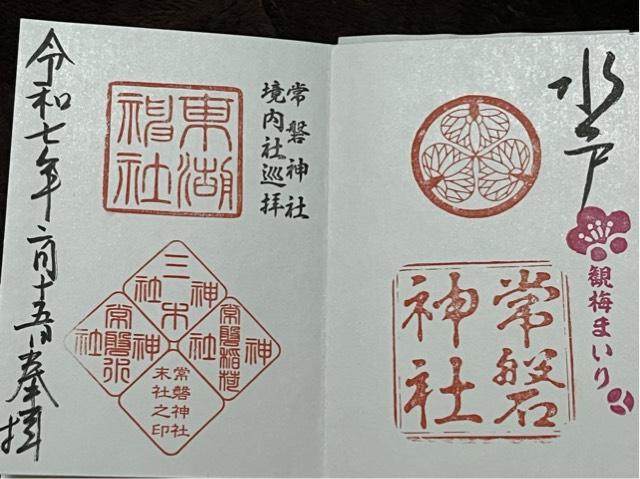 水戸
観梅まいり
常磐
神社
常磐神社
境内社巡拝
東湖
神社
三木神社
常磐稲荷神社
常磐水神社
常磐神社
末社之印
令和七年二月十五日奉拝